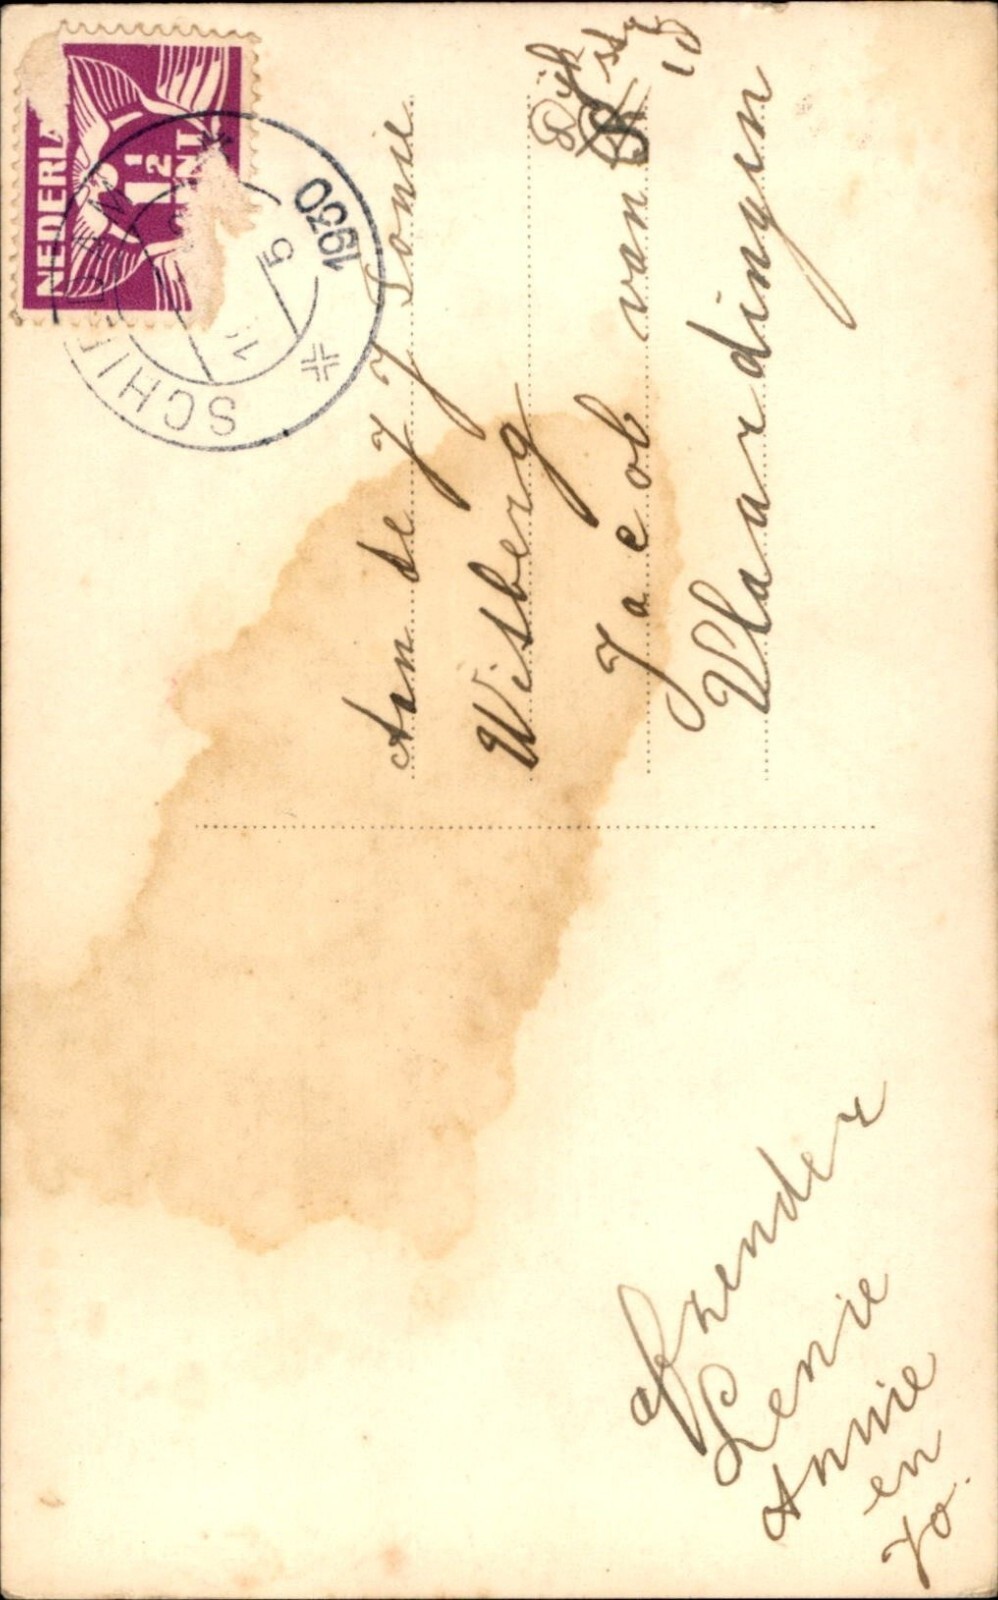 NEDERL
1½
CENT
SCHIEDAM
5
1930
Aan de J J Tonie
Wisberg
Jacob van Dijk str
15
Vlaardingen
afzender
Lenie
Annie
en
Jo.